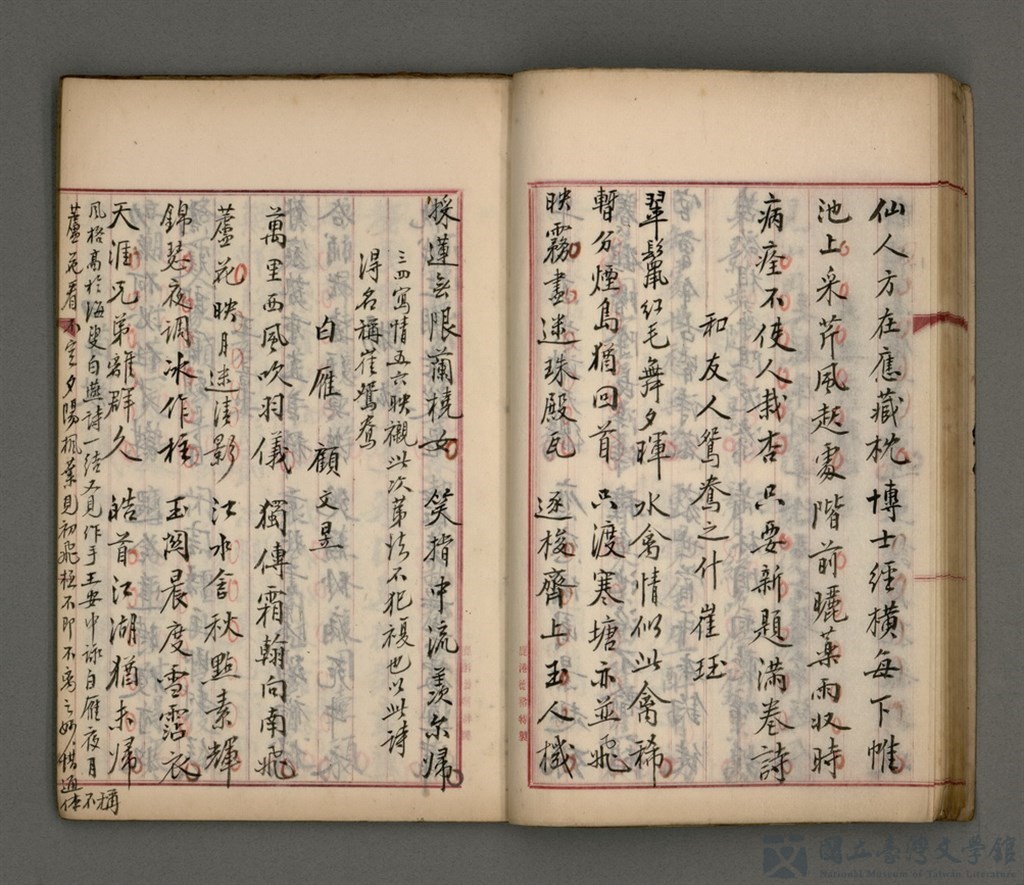 仙人方在應藏枕博士經橫每下帷
池上采芹風起處階前曬藥雨收時
病痊不使人栽杏只要新題滿卷詩
和友人鴛鴦之什崔珏
翠鬣紅毛舞夕暉水禽情似此禽稀
暫分煙島猶回首只渡寒塘亦並飛
映霧盡迷珠殿瓦逐梭齊上玉人機
採蓮無限蘭橈女笑指中流羨爾歸
三四寫情五六映襯此次第法不犯複也以此詩
得名稱崔鴛鴦
白雁 顧文昱
萬里西風吹羽儀獨傳霜翰向南飛
蘆花映月迷清影江水含秋點素輝
錦瑟夜調冰作柱玉關晨度雪霑衣
天涯兄弟離群久皓首江湖猶未歸
風格高於海叟白燕詩一結又見作手王安中詠白雁夜月
蘆花看不定夕陽楓葉見初飛極不即不离之妙惜通体
不稱
國立臺灣文學館
National Museum of Taiwan Literature